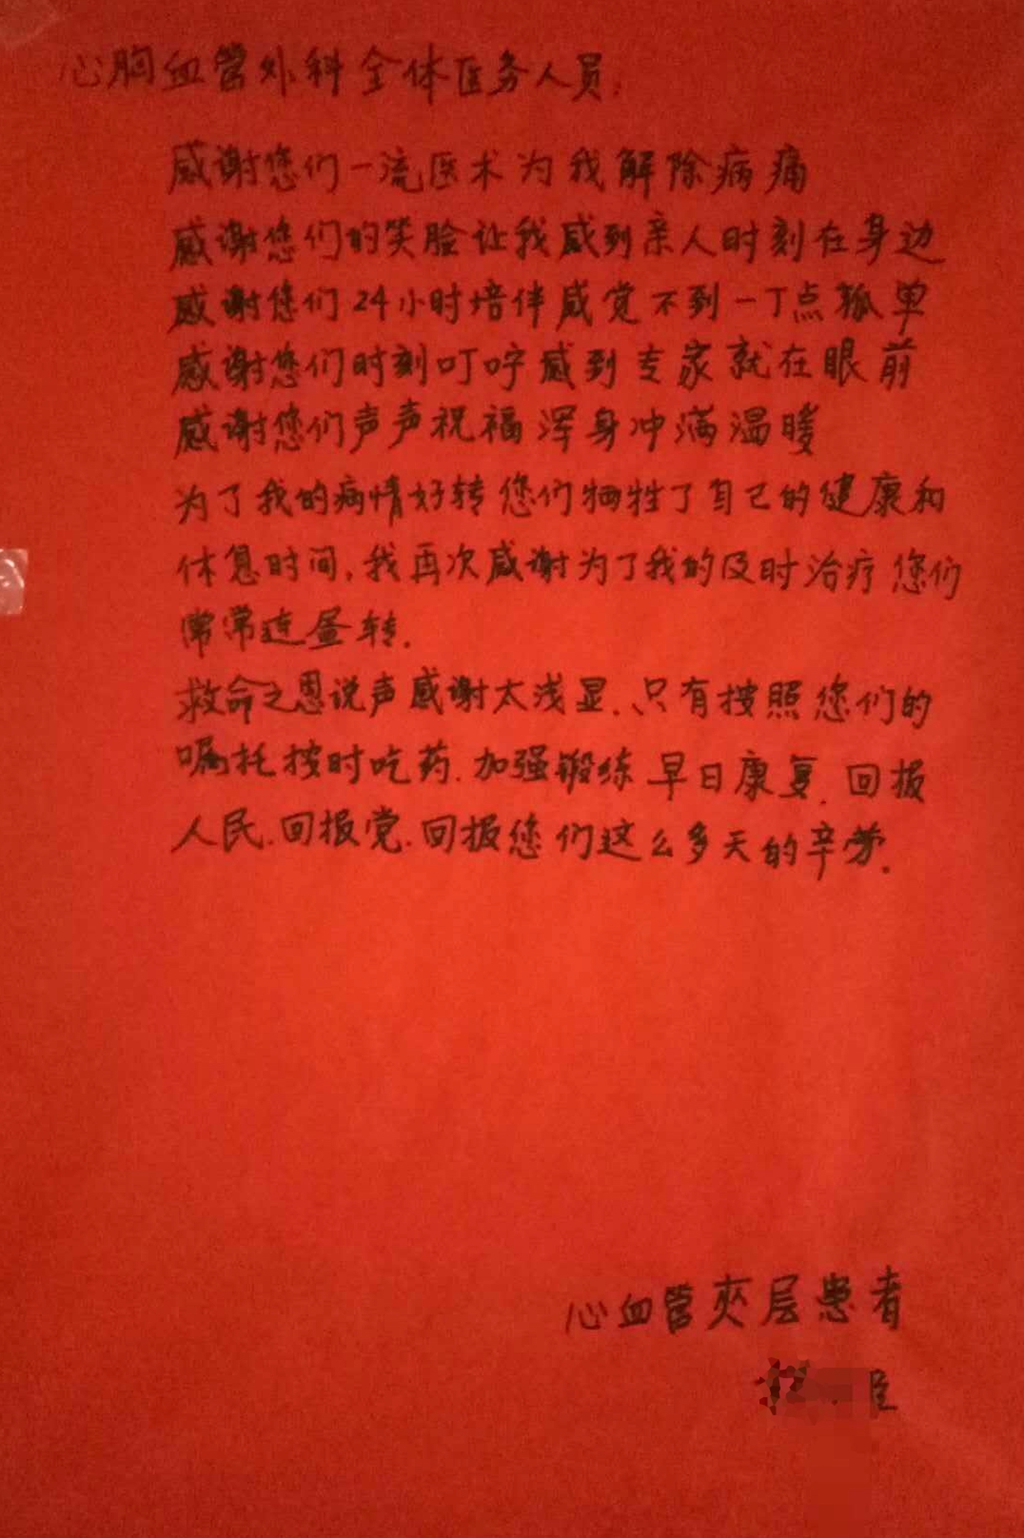 心胸血管外科全体医务人员:
感谢您们一流医术为我解除病痛
感谢您们的笑脸让我感到亲人时刻在身边
感谢您们24小时培伴感觉不到一丁点孤单
感谢您们时刻叮咛感到专家就在眼前
感谢您们声声祝福浑身冲满温暖
为了我的病情好转您们牺牲了自己的健康和
休息时间,我再次感谢为了我的及时治疗您们
常常连昼转.
救命之恩说声感谢太浅显.只有按照您们的
嘱托按时吃药.加强锻练早日康复.回报
人民.回报党.回报您们这么多天的辛劳.
心血管夹层患者